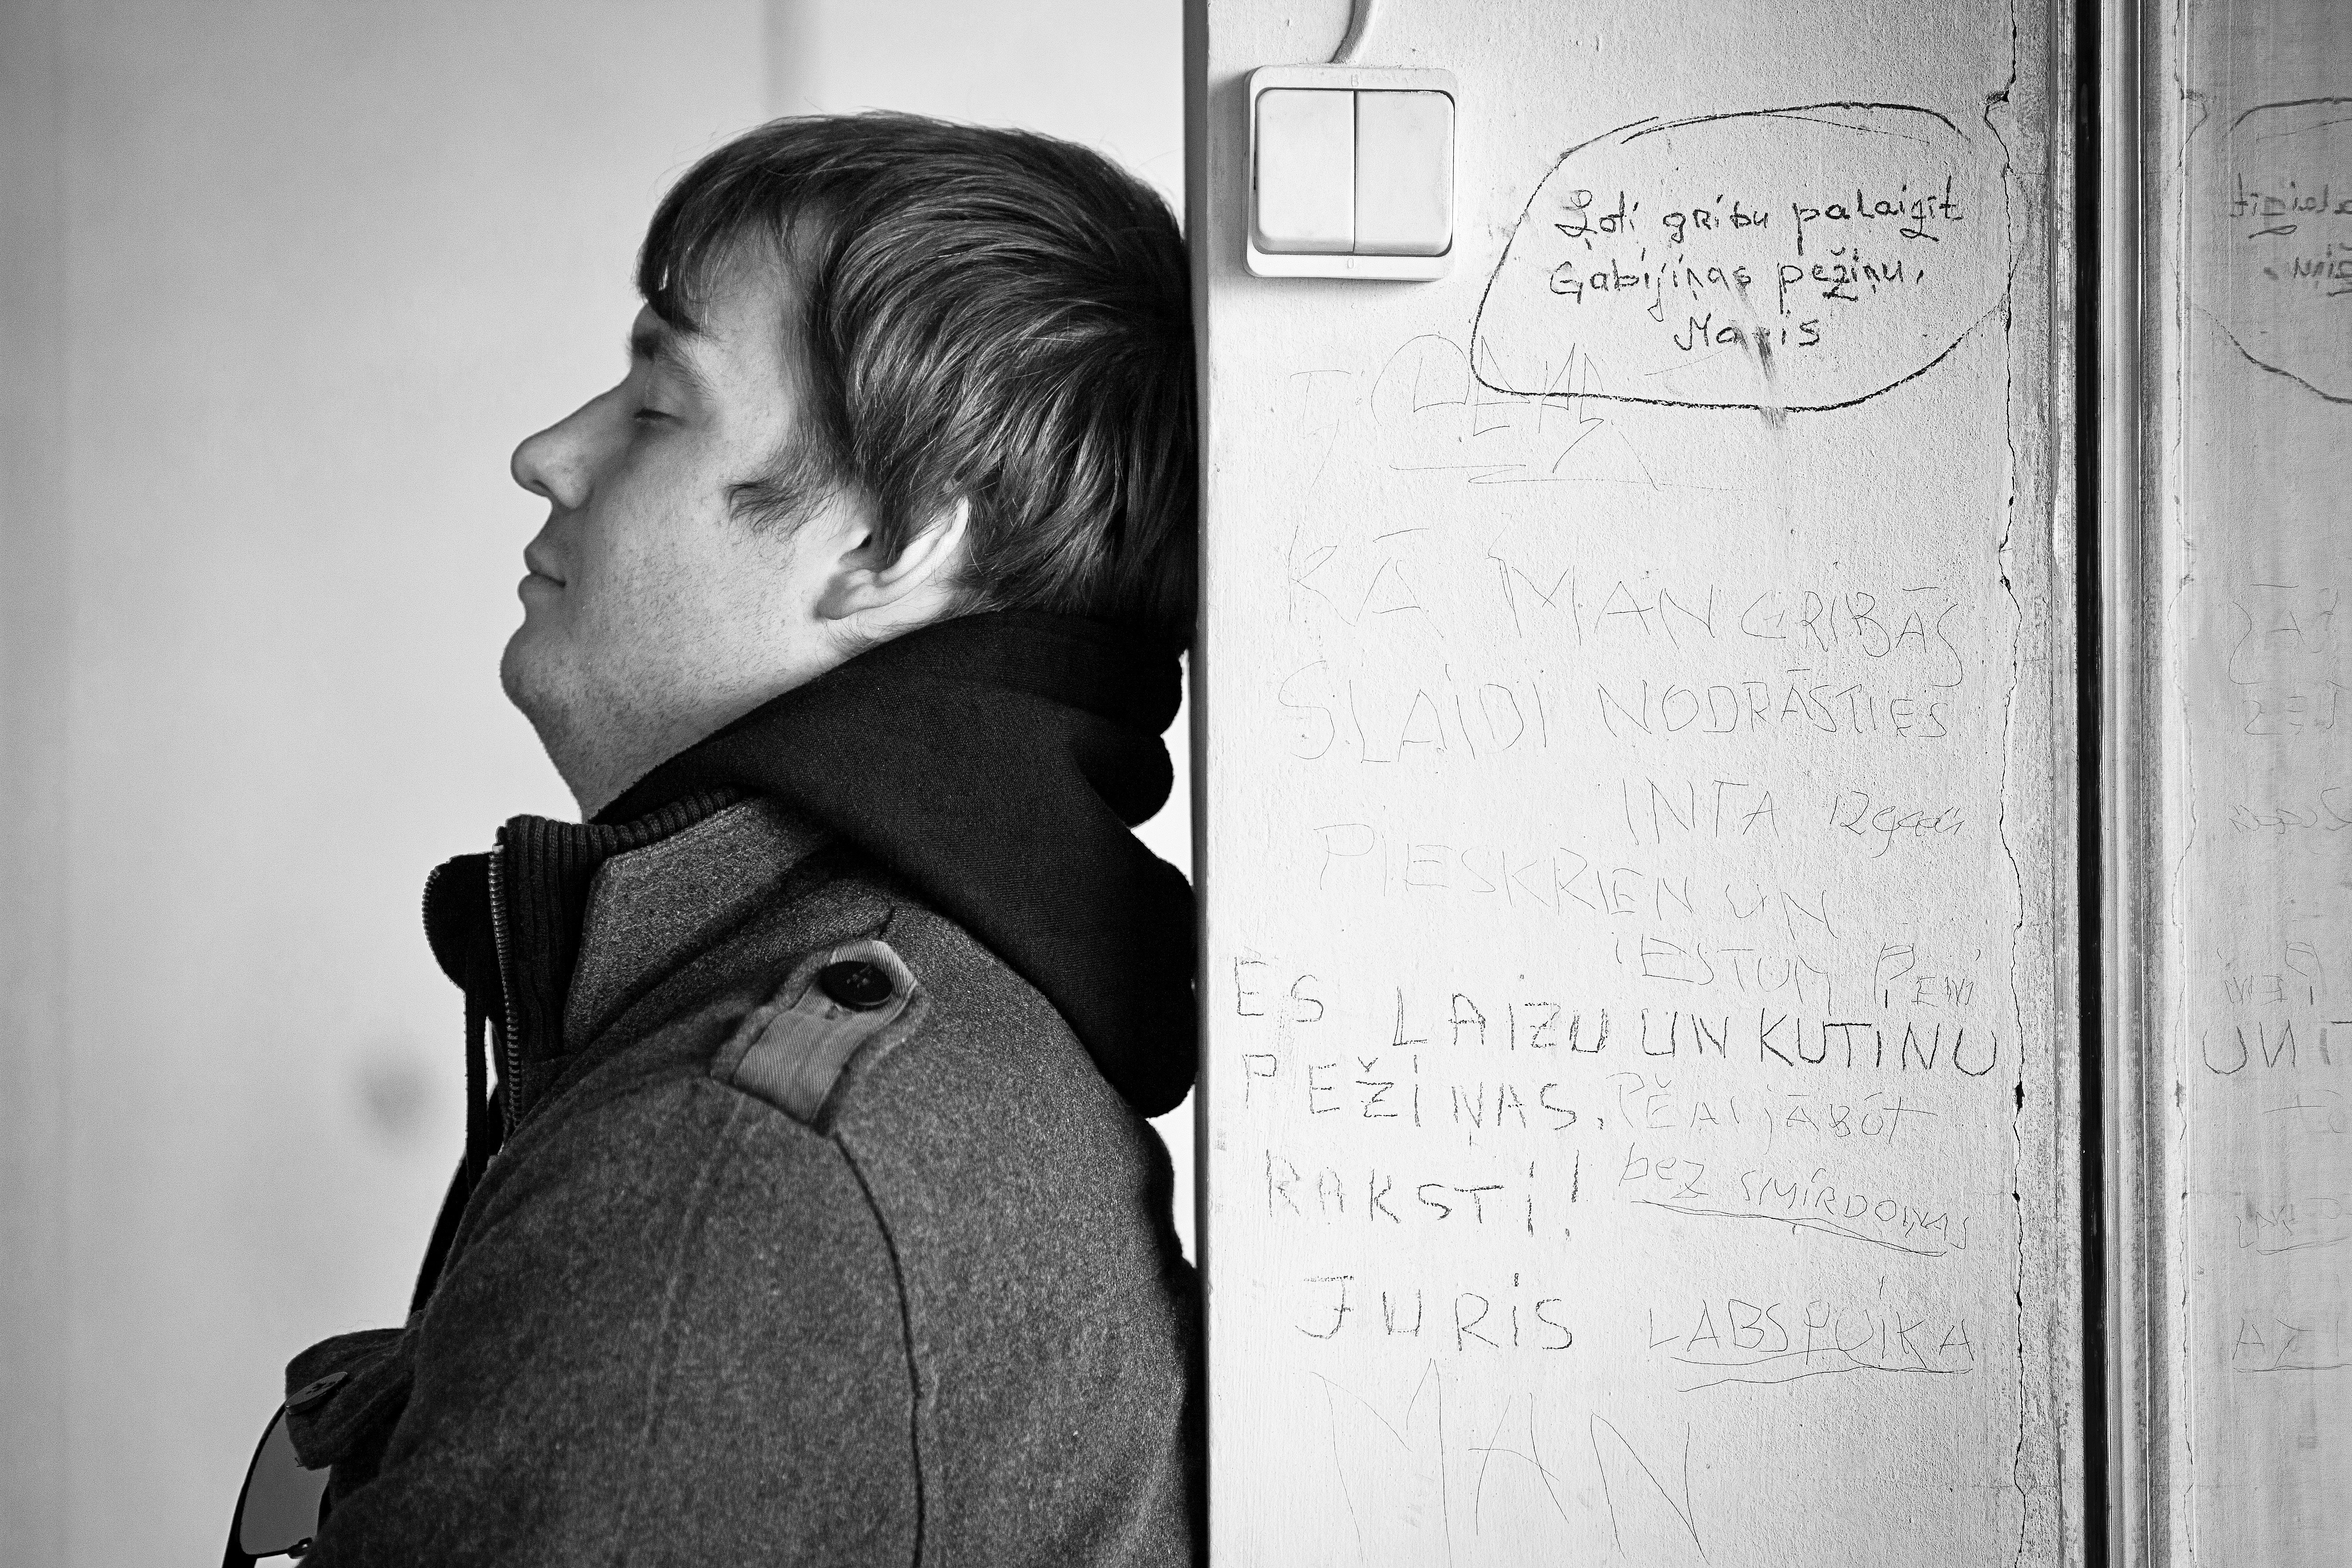 Ļoti gribu palaizīt
Gabijiņas pežiņu.
Maris
KĀ MAN GRIBĀS
SLAIDI NODRĀSTIES
INTA
PIESKRIEN UN
IESTUM PENI
ES LAIZU UN KUTINU
PEŽIŅAS.
RAKSTI!
PĒAI JĀBŪT
bez SMIRDOŅAS
JURIS
LABS PUIKA
MAN